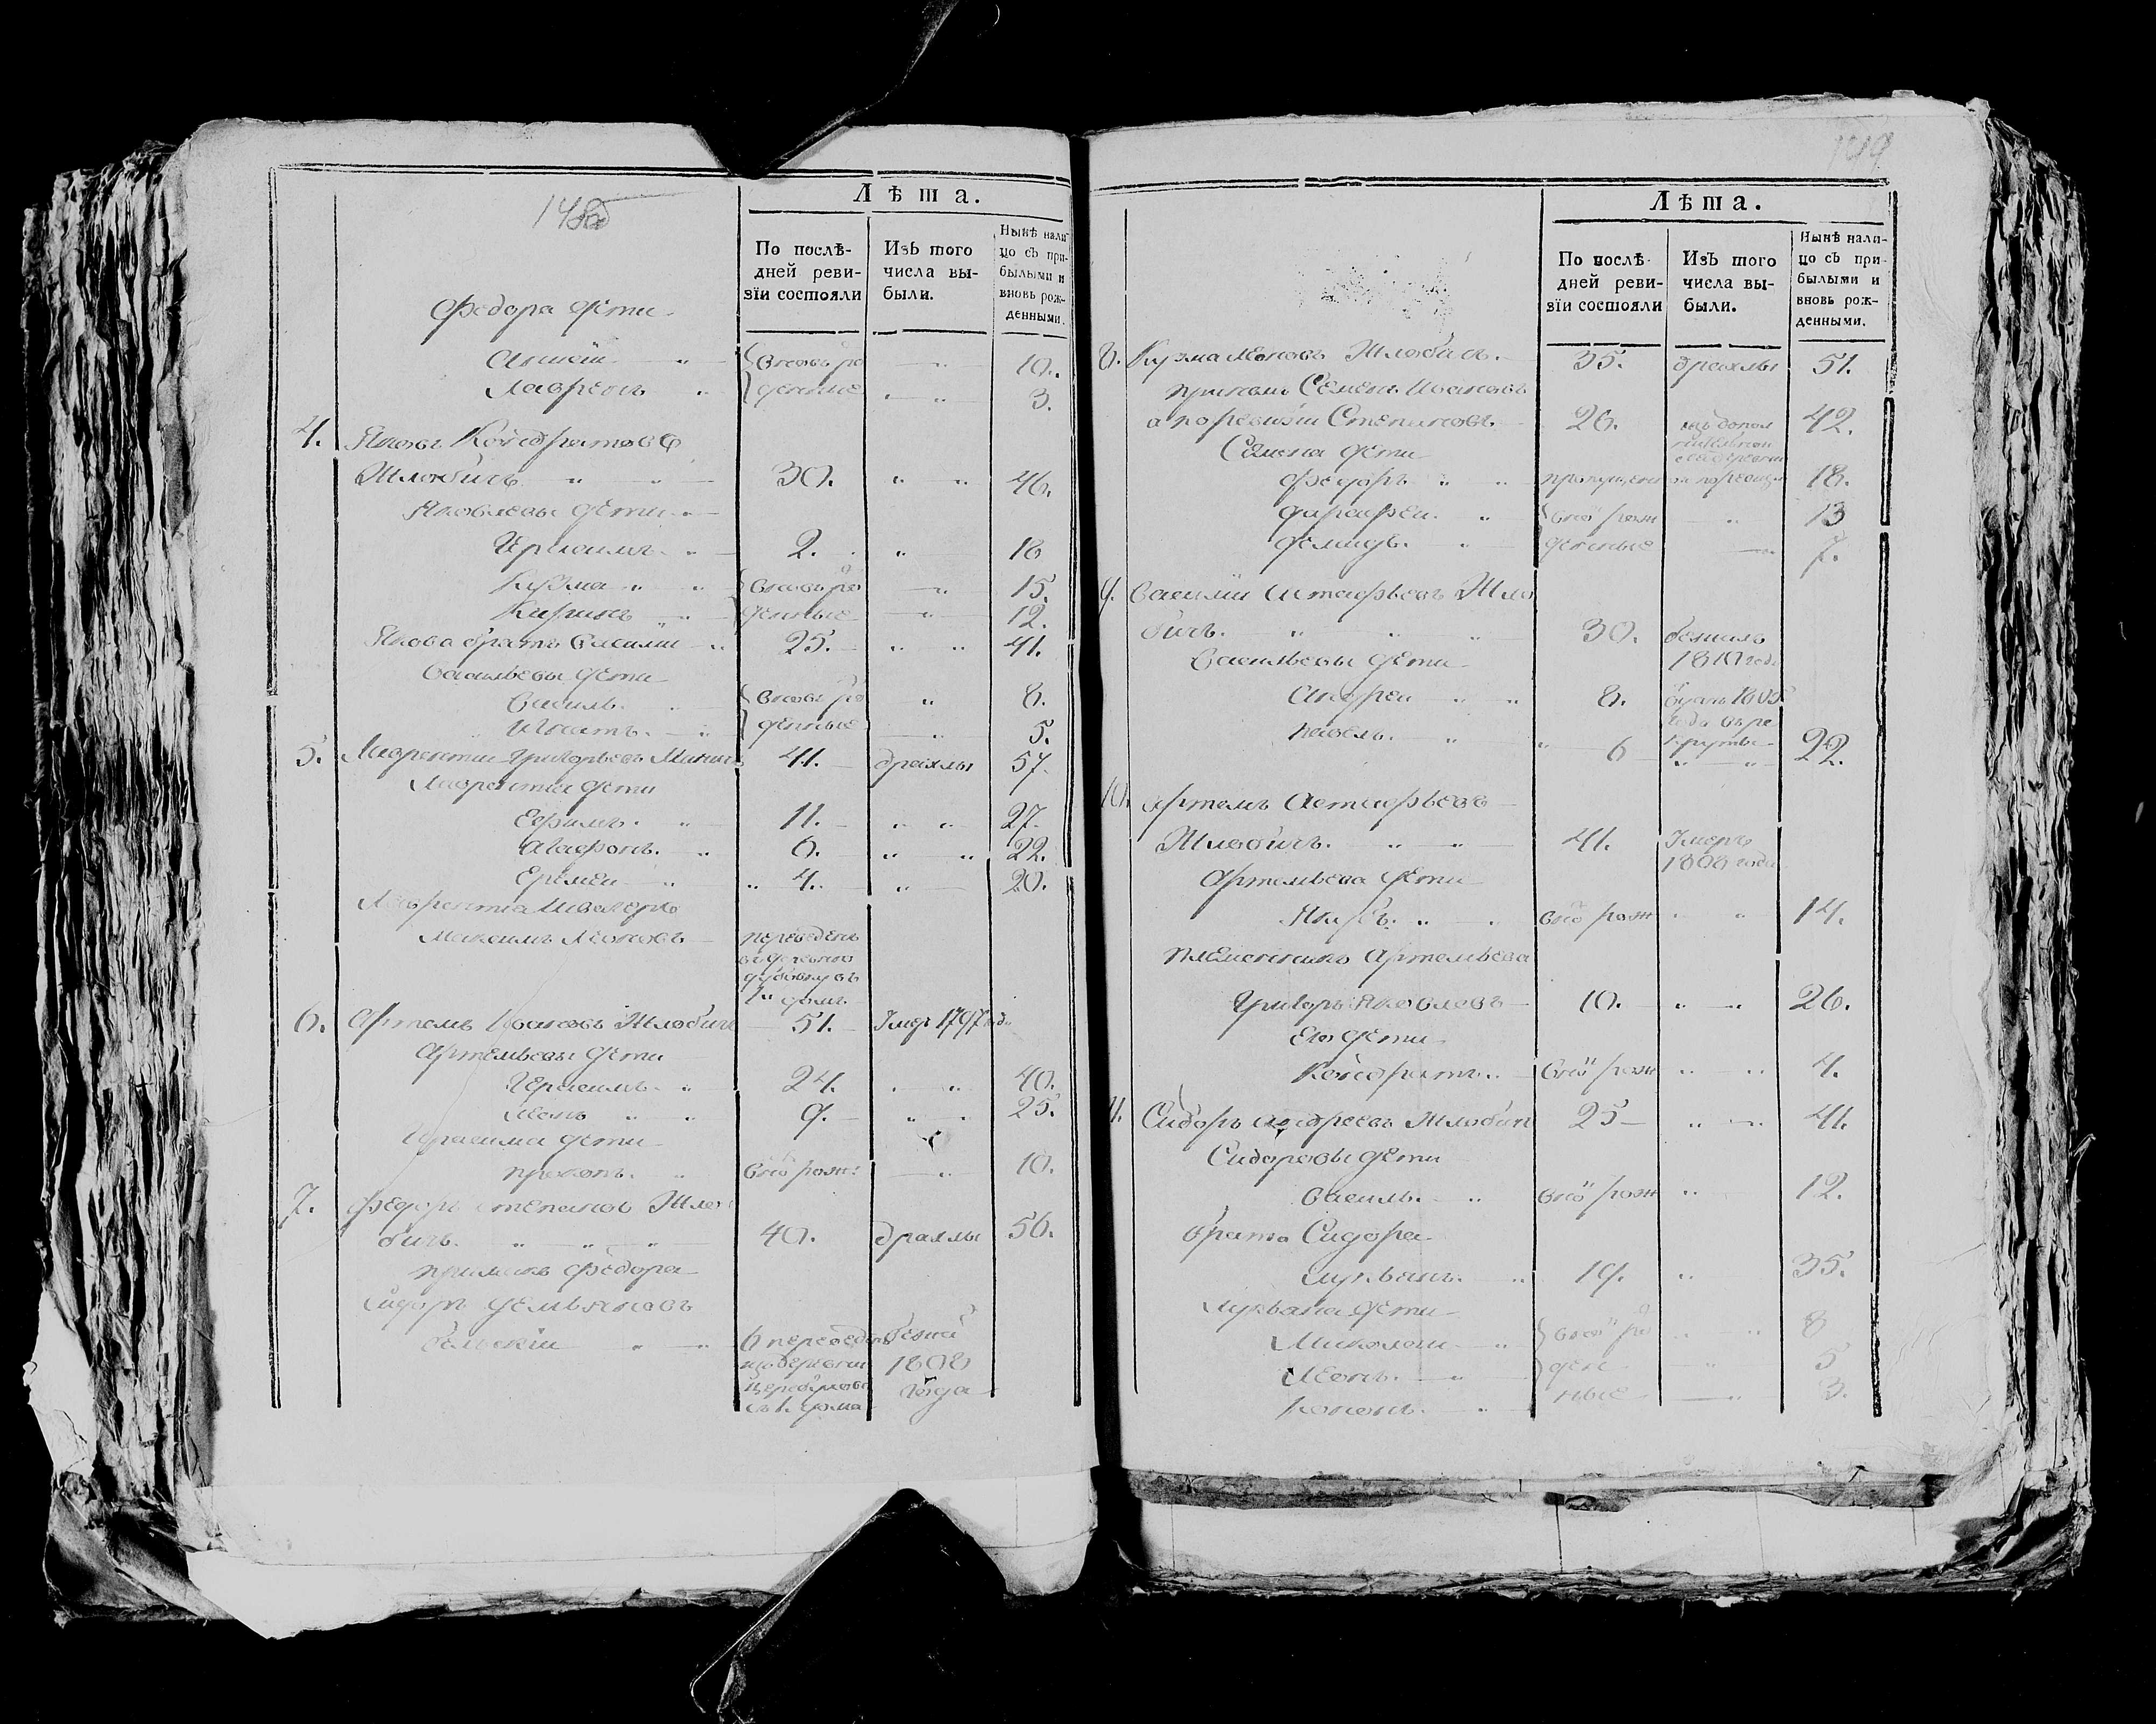 148об
Лѣта.
По послѣ-
дней реви-
зіи состояли
Изъ того
числа вы-
были.
Нынѣ нали-
цо съ при-
былыми и
вновь рож-
денными.
Федора дѣти
вновь ро 10.
Лаврен денные 3.
4. Яковъ Кондратовъ
Жлобичъ 30. 46.
Яковлевы дѣти
Герасимъ 2. 18
Кузма вновь ро 15.
денные 12.
Якова братъ Василии 25. 41.
Васильевы дѣти
Василь вновь ро 8.
Игнатъ денные 5.
5. Лаврентии Григорьевъ 41. дряхлы 57.
Лаврентия дѣти
Ефимъ 11. 27.
Агафонъ 6. 22.
Еремеи 4. 20.
Лаврентия
Максимъ Леоновъ переведенъ
въ деревню
въ
1 домъ
6. Артемъ Ивановъ Жлобичъ 51. Умеръ 1797 года
Артемьевы дѣти
Герасимъ 24. 40.
Леонъ 9. 25.
Герасима дѣти
Прокопъ внов рож: 10.
7. Федоръ Степановъ Жло
бичъ. 40. дряхлы 56.
примакъ Федора
Сидоръ Демьяновъ
6 переведенъ
из деревни 1808
года
съ 1. дома
149
Лѣта.
По послѣ-
дней реви-
зіи состояли
Изъ того
числа вы-
были.
Нынѣ нали-
цо съ при-
былыми и
вновь рож-
денными.
8. Кузма Леоновъ Жлобичъ. 35. дряхлы 51.
примакъ Семенъ Ивановъ
а по ревизии Степановъ 26. 42.
Семена дѣти
Федоръ по ревизии 18.
внов рож 13
Демидъ денные 7.
9. Василии Астафьевъ Жло
бичъ. 30. бежалъ
1810 года
Васильевы дѣти
Андреи 8. отданъ 1805
года въ ре
круты
Павелъ 6 22.
10. Артемъ Астафьевъ
Жлобичъ. 41. Умеръ
1808 года
Артемьева дѣти
Якубъ внов рож 14.
племенникъ Артемьева
Григоръ Яковлевъ 10. 26.
Его дѣти
Кондратъ внов рож 4.
11. Сидоръ Андреевъ Жлобичъ 25 41.
Сидоровы дѣти
Василь. внов рож 12.
брата Сидора
Лукьянъ. 19. 35.
Лукьяна дѣти
Миколаи внов ро 8
Леонъ. ден 5
Кононъ. ные 3.